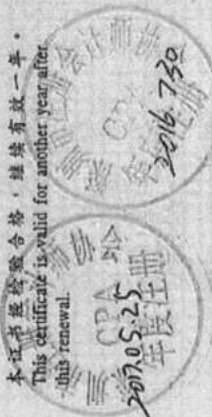 本证书经检验合格，继续有效一年。
This certificate is valid for another year after
this renewal.
CPA
年度注册
2017.05.25
CPA
年度注册
2016.7.30